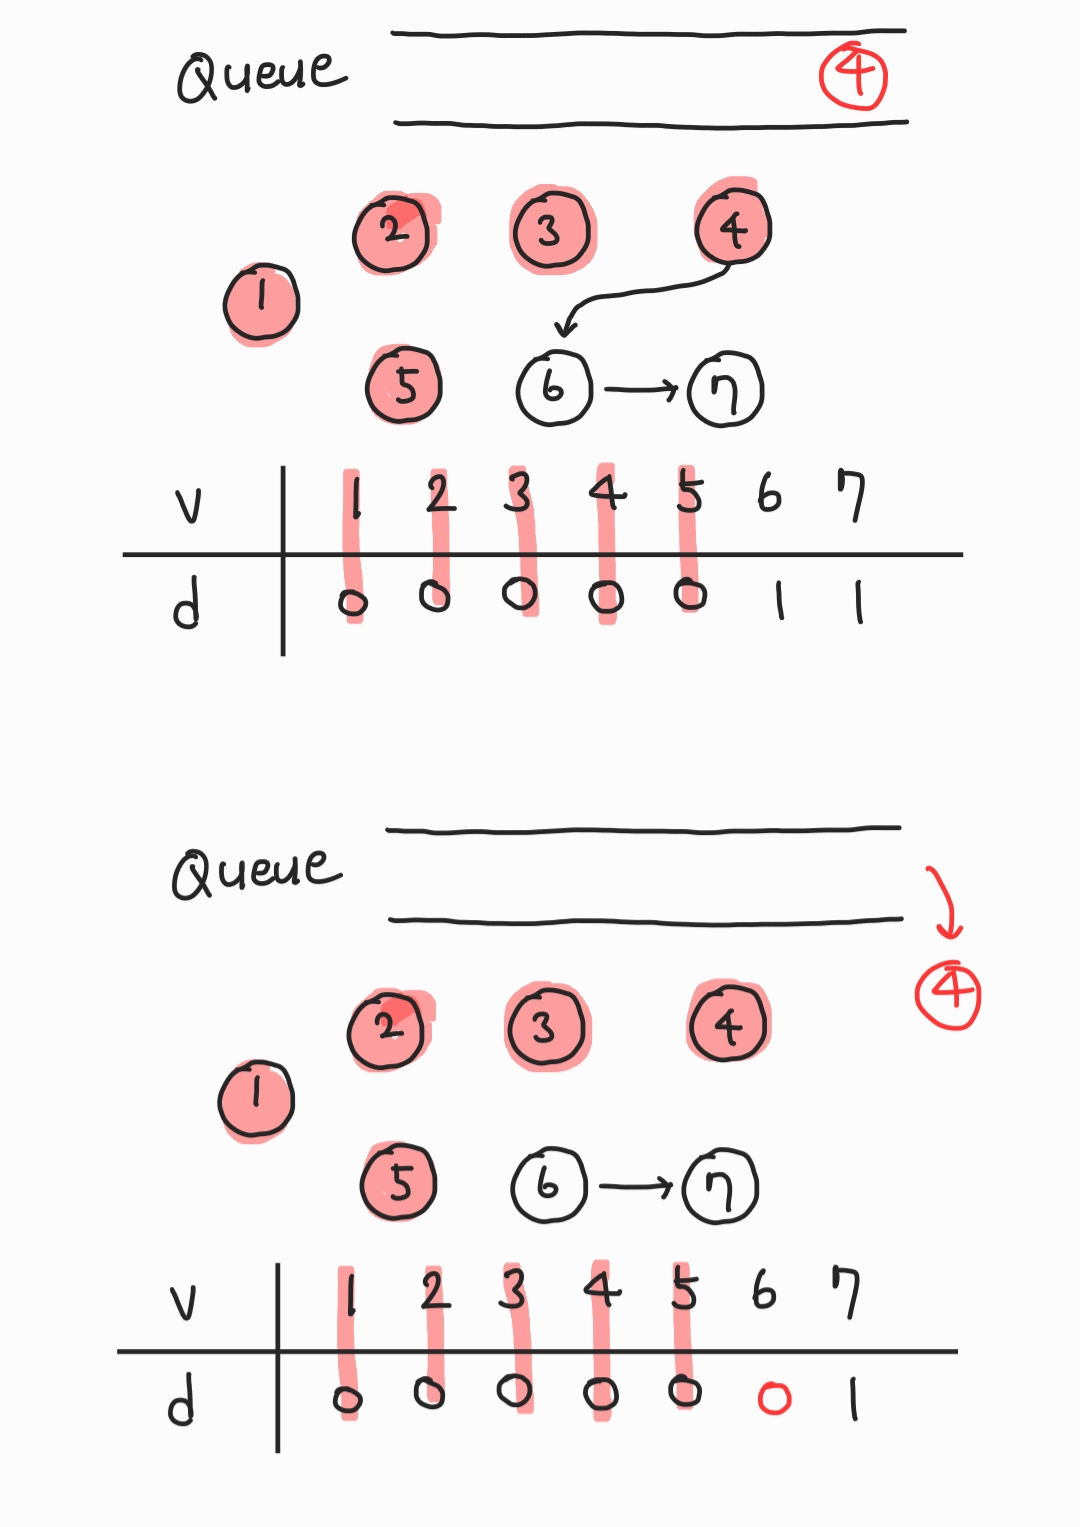 Queue 4
2 3 4
1
5 6 7
V 1 2 3 4 5 6 7
d 0 0 0 0 0 1 1
Queue
4
2 3 4
1
5 6 7
V 1 2 3 4 5 6 7
d 0 0 0 0 0 0 1